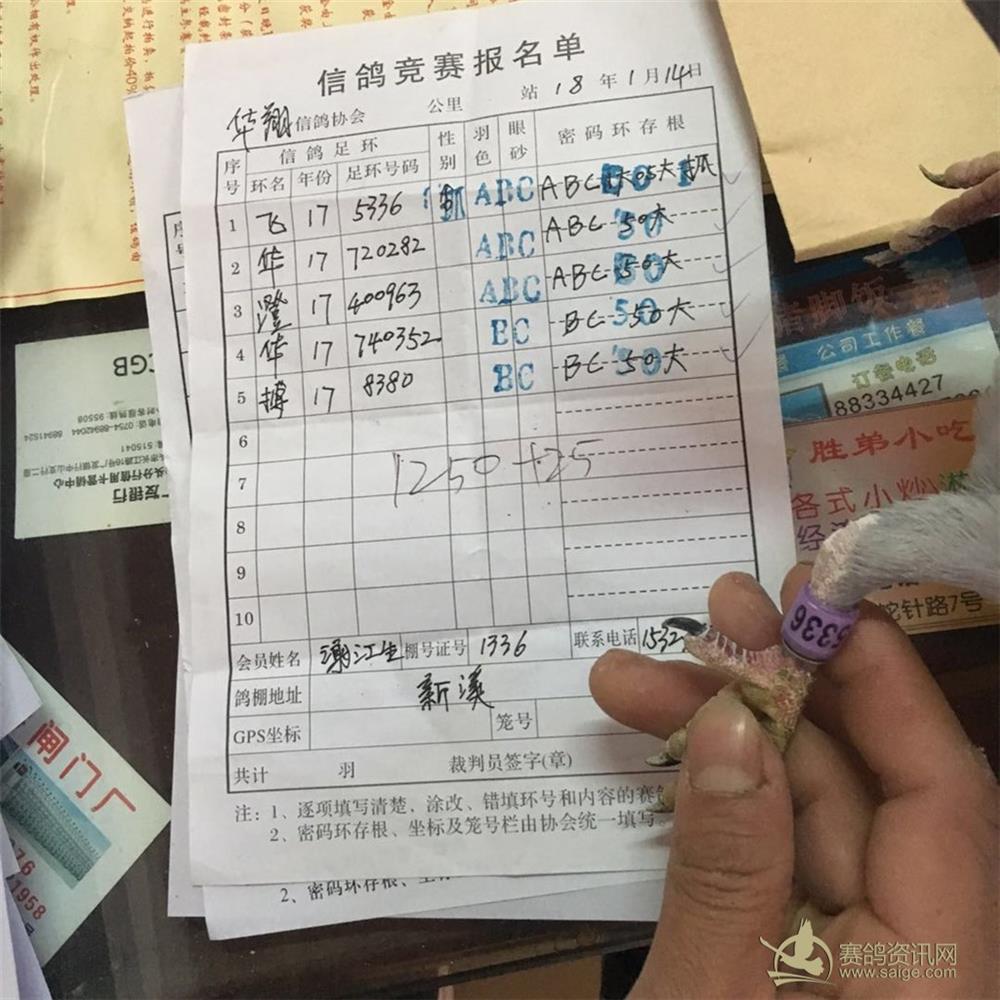 信鸽竞赛报名单
华翔信鸽协会 公里 站 18 年 1 月 14 日
序号 信鸽足环 性别 羽色 眼砂 密码环存根
环名 年份 足环号码
1 飞 17 5336 ABC ABC
2 华 17 720282 ABC ABC 50大
3 澄 17 400963 ABC ABC 50大
4 华 17 740352 BC BC 50大
5 搏 17 8380 BC BC 50大
6
7
8
9
10
1250+25
会员姓名 谢江生 棚号证号 1336 联系电话 1532
鸽棚地址 新溪
GPS坐标 笼号
共计 羽 裁判员签字(章)
注：1、逐项填写清楚，涂改、错填环号和内容的赛
2、密码环存根、坐标及笼号栏由协会统一填写。
2、密码环存根、
5336
公司工作餐
订餐电话
88334427
胜弟小吃
各式小炒
蛇针路7号
CGB
广发银行
头分行信用卡营销中心
515041
0754-88942044 88941524
95508
闸门厂
1958
赛鸽资讯网
www.saige.com